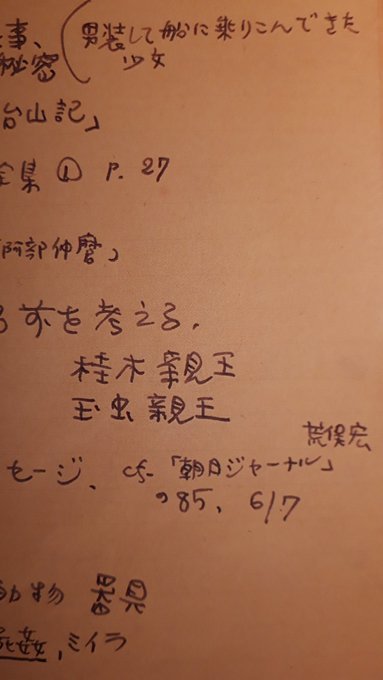 事、(男装して船に乗りこんできた
秘密 少女
台山記」
全集① P. 27
「阿部仲麿」
る前を考える.
桂木親王
玉虫親王
荒俣宏
セージ、cf.「朝日ジャーナル」
'85, 6/7
動物 器具
屍姦, ミイラ